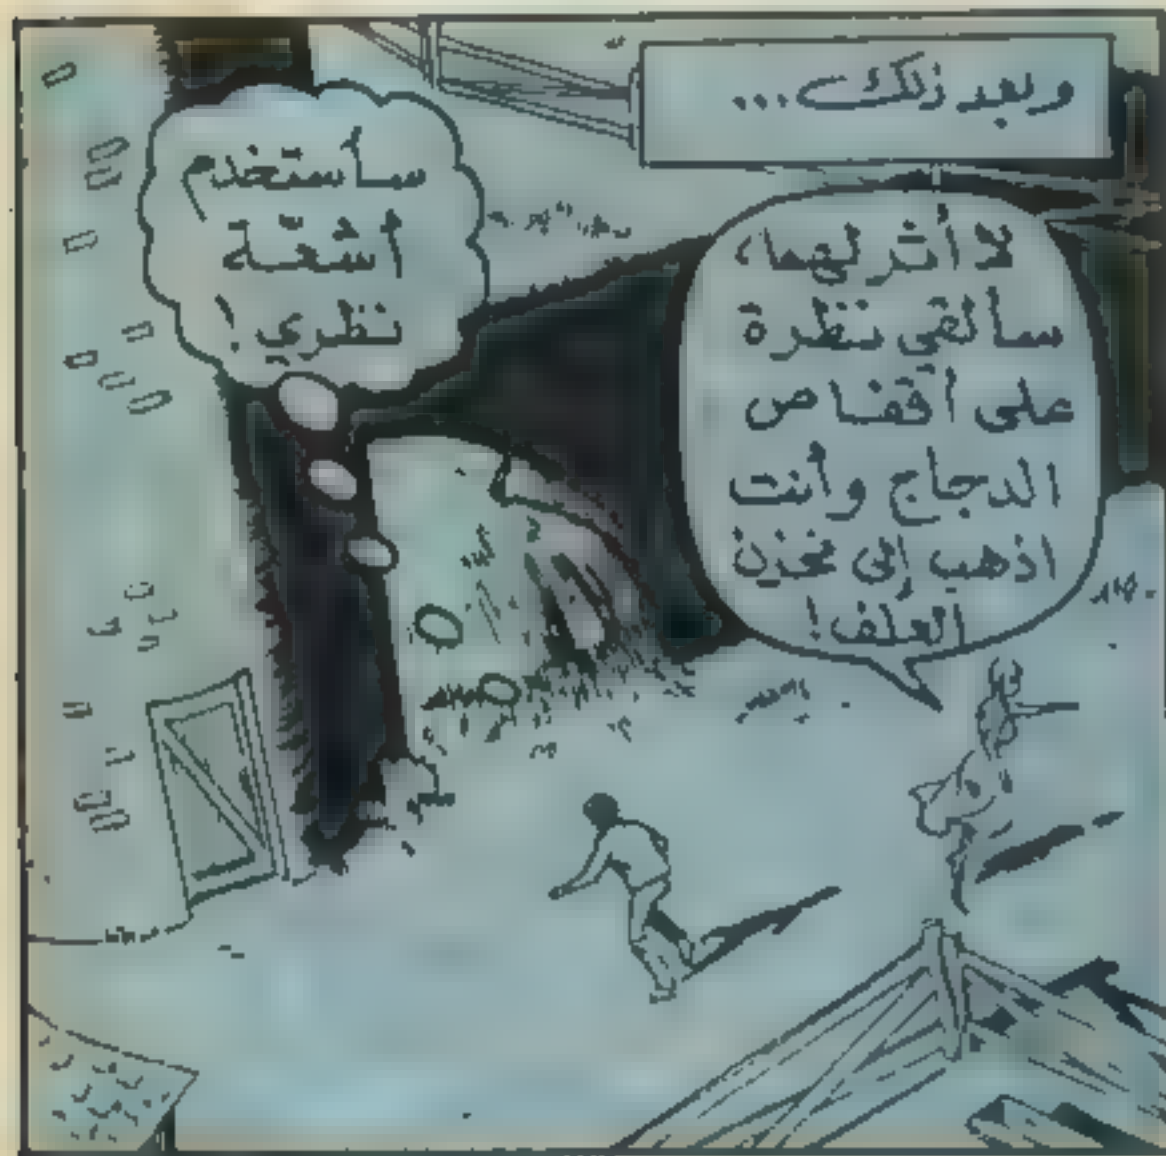 وبعد ذلك...
لا أثر لهما،
سألقي نظرة
على أقفاص
الدجاج وأنت
اذهب إلى مخزن
العلف!
سأستخدم
أشعّة
نظري!